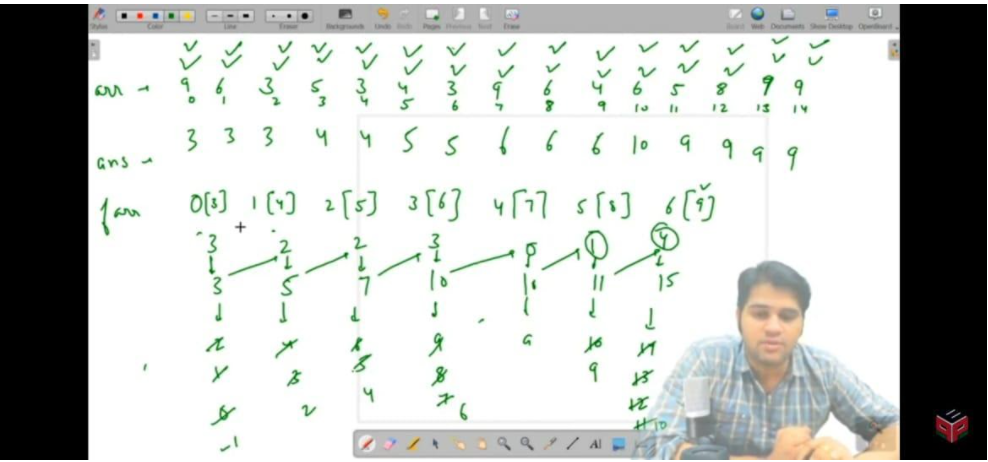 Styles Color Line Eraser Backgrounds Undo Redo Pages Previous Next Erase Select Web Documents Show Desktop OpenBoard
arr → 9 6 3 5 3 4 3 9 6 4 6 5 8 9 9
0 1 2 3 4 5 6 7 8 9 10 11 12 13 14
ans → 3 3 3 4 4 5 5 6 6 6 10 9 9 9 9
farr 0[3] 1[4] 2[5] 3[6] 4[7] 5[8] 6[9]
3 2 2 3 0 1 4
3 5 7 10 10 11 15
2 4 6 9 9 10 14
1 3 5 8 9 13
0 2 4 7 6 12
-1 11 10